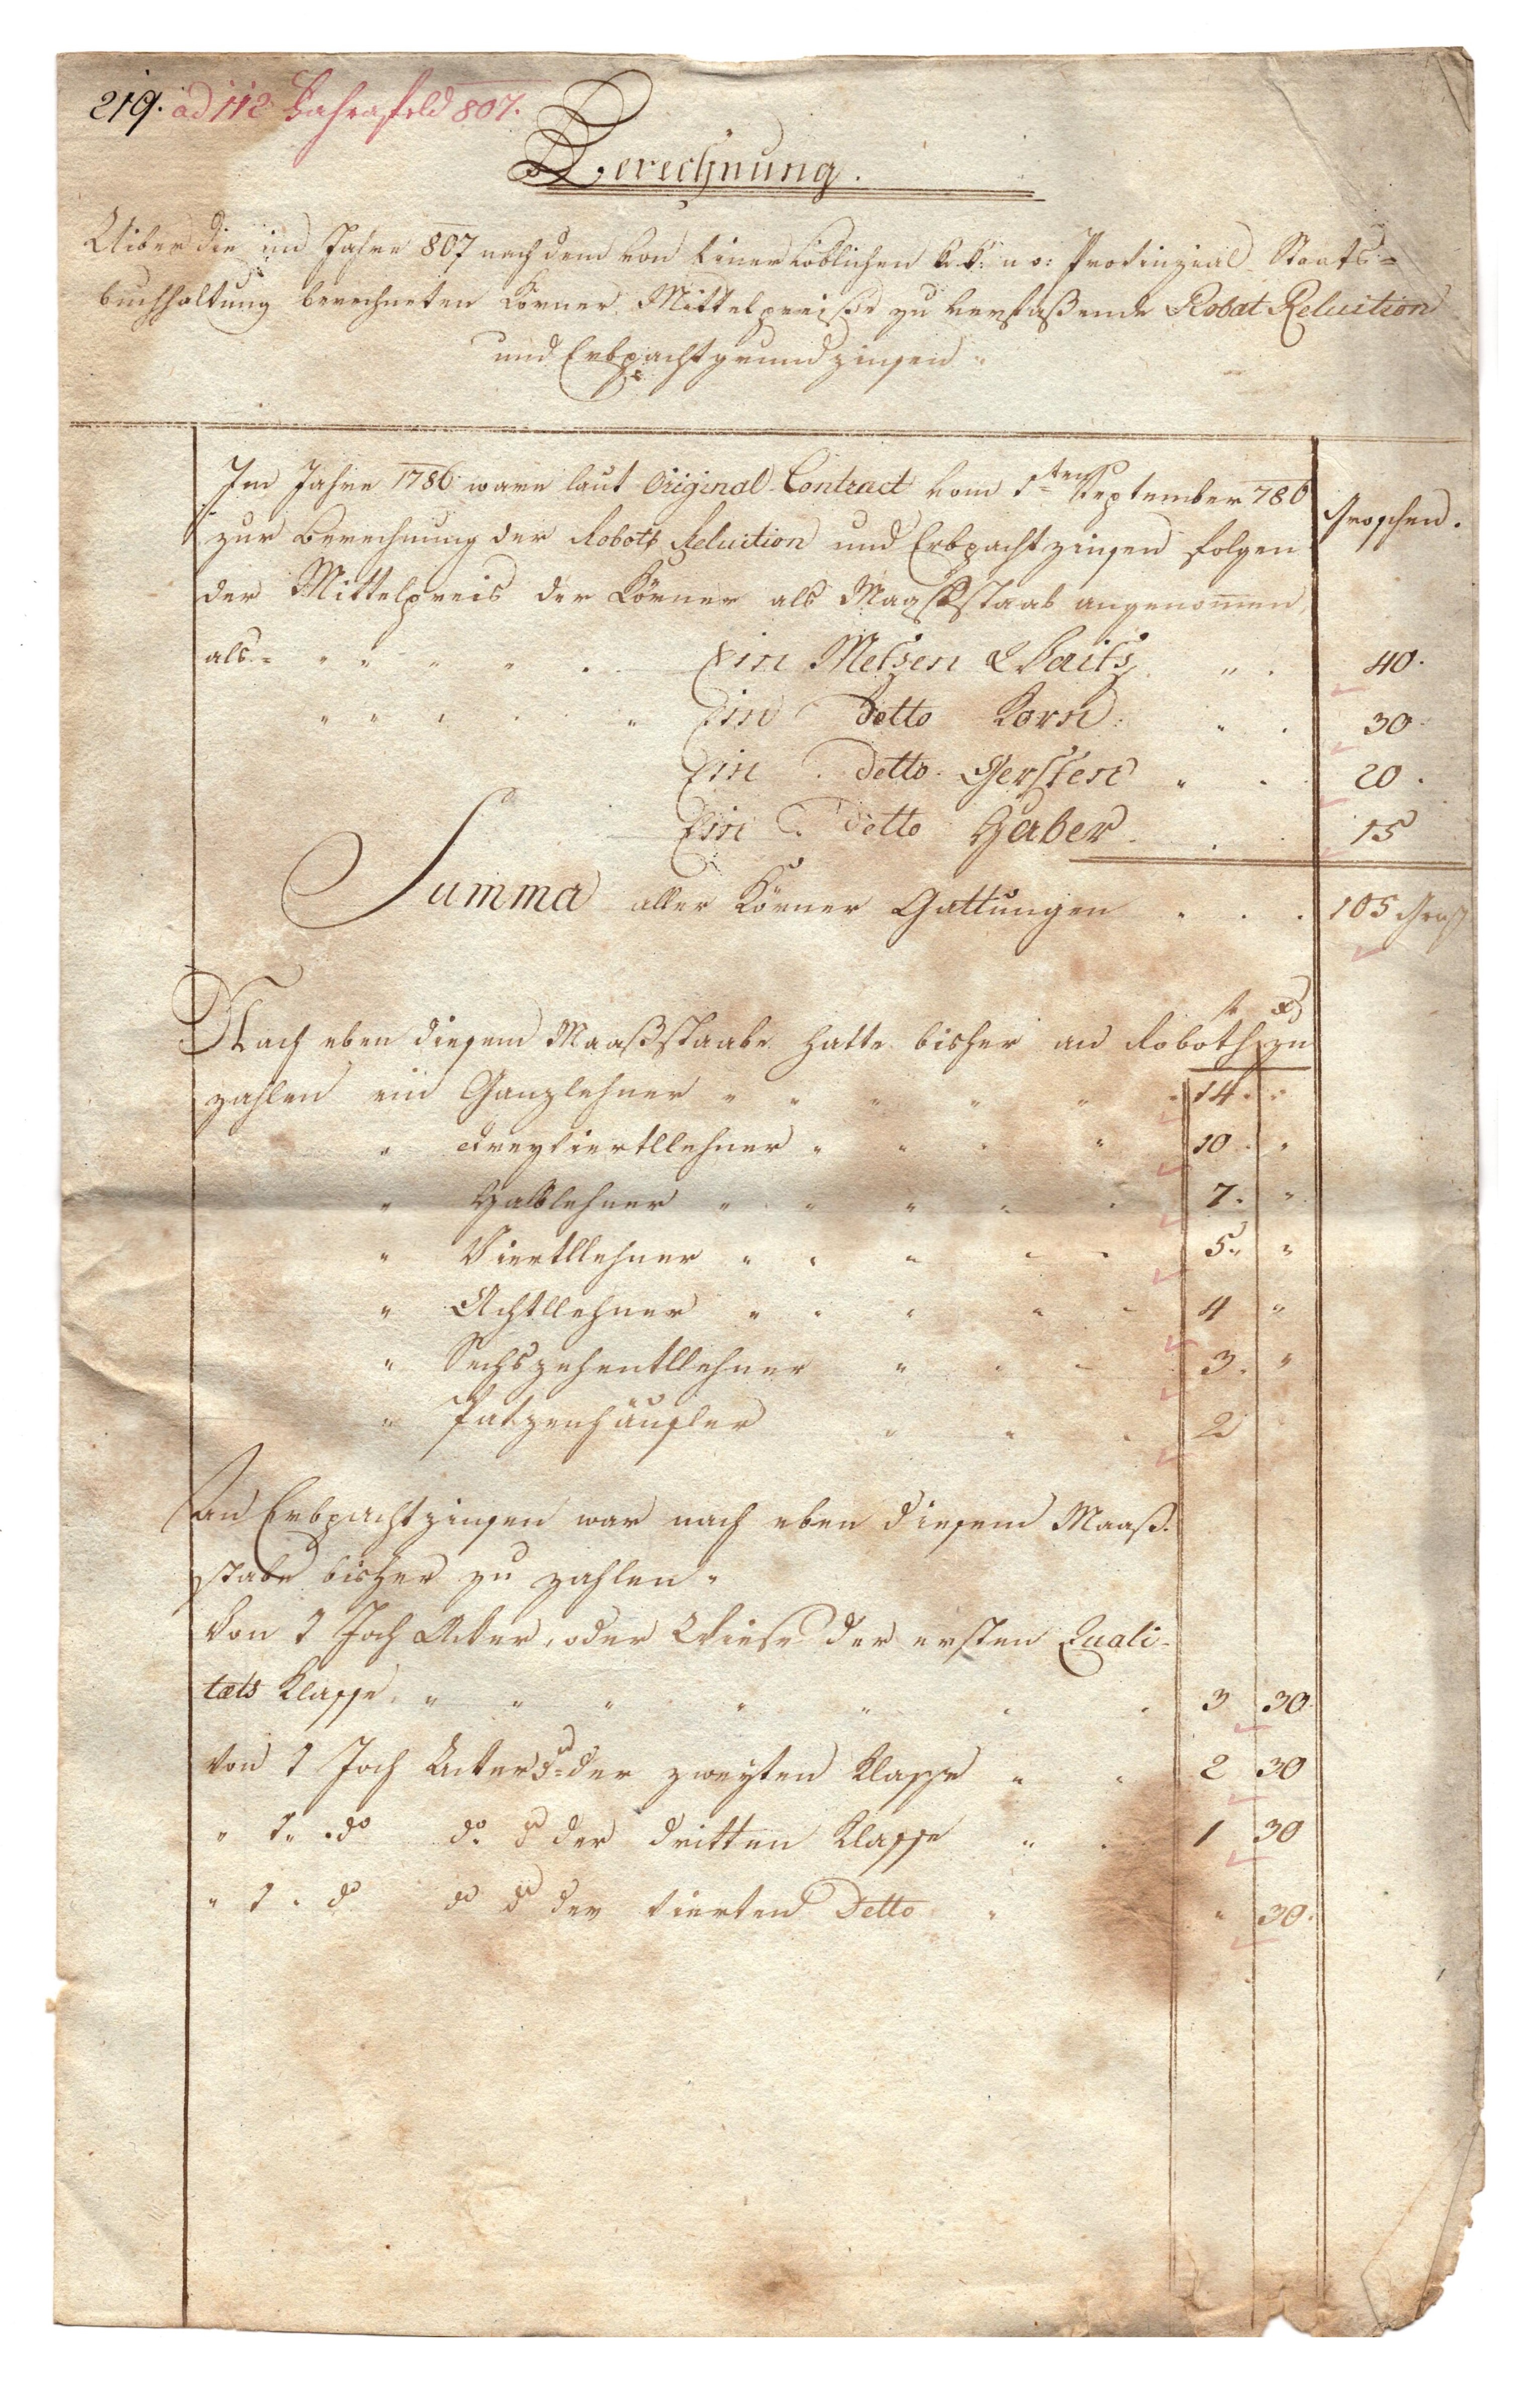 219. ad 112 Bahrasfeld 807.
Berechnung.
Uiber die im Jahre 807 nach dem von Einer Löblichen k: k: n: o: Provinzial Staats=
buchhaltung berechneten Körner Mittelpreise zu verfaßende Robat Reluition
und Erbpachtgrundzinsen
Im Jahre 1786 ware laut Original Contract vom 1ten September 786 Groschen.
zur Berechnung der Robots Reluition und Erbpachtzinsen folgen
der Mittelpreis der Körner als Maaßstaab angenomen,
als= " " " " . Ein Metzen Waitz " . 40.
" " " . . " Ein Detto Korn . " . 30
Ein Detto Gersten " . 20.
Ein Detto Haber . . . 15
Summa aller Körner Gattungen . . . 105 Grosch
f x
Nach eben diesem Maaßstaabe hatte bisher an Roboth zu
zahlen ein Ganzlehner " " " " " . 14. "
" dreyviertllehner " " " " 10. "
" Halblehner " " " " . 7. "
" Viertllehner " " " - - 5. "
" Achtllehner " " " " - 4 "
" Sechszehentllehner " . - . 3. "
" Patzenhäusler " " . 2
An Erbpachtzinsen war nach eben diesem Maaß-
stabe bisher zu zahlen "
Von 1 Joch Acker, oder Wiese der ersten Quali-
tæts Klasse " " " " " . . 3 30.
Von 1 Joch Acker do der zweyten Klasse " " 2 30
" 1 " do do do der dritten Klasse " . 1 30
" 1 " do do do der vierten Detto " " 30.